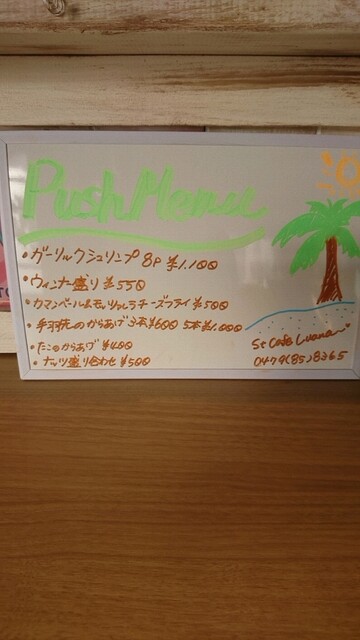 Push Menu
・ガーリックシュリンプ 8P ¥1.100
・ウィンナー盛り ¥550
・カマンベール&モッツァレラチーズフライ ¥500
・手羽先のからあげ 3本¥600 5本¥1.000
・たこのからあげ ¥400
・ナッツ盛り合わせ ¥500
St Cafe Luana
0479(85)8365